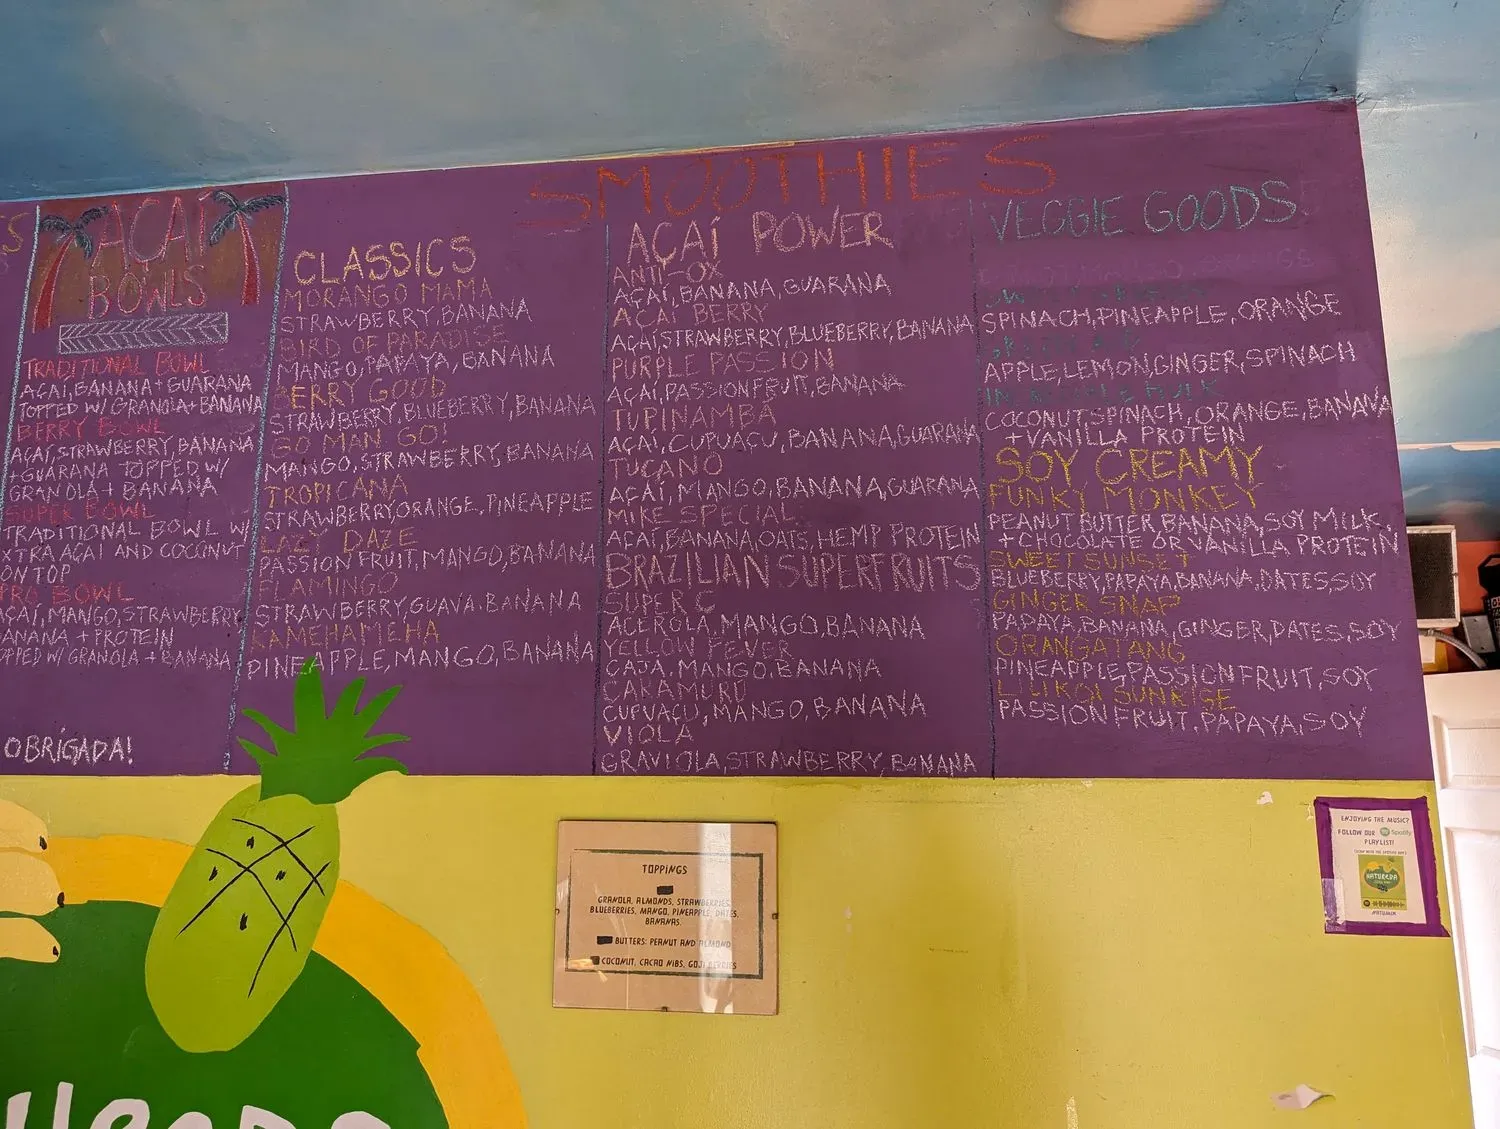 AÇAÍ
BOWLS
TRADITIONAL BOWL
AÇAÍ, BANANA + GUARANA
TOPPED W/ GRANOLA + BANANA
BERRY BOWL
AÇAÍ, STRAWBERRY, BANANA
+ GUARANA TOPPED W/
GRANOLA + BANANA
SUPER BOWL
TRADITIONAL BOWL W/
XTRA AÇAÍ AND COCONUT
ON TOP
PRO BOWL
AÇAÍ, MANGO, STRAWBERRY
ANANA + PROTEIN
OPPED W/ GRANOLA + BANANA
OBRIGADA!
SMOOTHIES
CLASSICS
MORANGO MAMA
STRAWBERRY, BANANA
BIRD OF PARADISE
MANGO, PAPAYA, BANANA
BERRY GOOD
STRAWBERRY, BLUEBERRY, BANANA
GO MAN GO!
MANGO, STRAWBERRY, BANANA
TROPICANA
STRAWBERRY, ORANGE, PINEAPPLE
LAZY DAZE
PASSION FRUIT, MANGO, BANANA
FLAMINGO
STRAWBERRY, GUAVA, BANANA
KAMEHAMEHA
PINEAPPLE, MANGO, BANANA
AÇAÍ POWER
ANTI-OX
AÇAÍ, BANANA, GUARANA
AÇAI BERRY
AÇAÍ, STRAWBERRY, BLUEBERRY, BANANA
PURPLE PASSION
AÇAÍ, PASSIONFRUIT, BANANA
TUPINAMBÁ
AÇAÍ, CUPUAÇU, BANANA, GUARANA
TUCANO
AÇAÍ, MANGO, BANANA, GUARANA
MIKE SPECIAL
AÇAÍ, BANANA, OATS, HEMP PROTEIN
BRAZILIAN SUPERFRUITS
SUPER C
ACEROLA, MANGO, BANANA
YELLOW FEVER
CAJA, MANGO, BANANA
CARAMURÚ
CUPUAÇU, MANGO, BANANA
VIOLA
GRAVIOLA, STRAWBERRY, BANANA
VEGGIE GOODS
SPINACH, PINEAPPLE, ORANGE
APPLE, LEMON, GINGER, SPINACH
INCREDIBLE HULK
COCONUT, SPINACH, ORANGE, BANANA
+ VANILLA PROTEIN
SOY CREAMY
FUNKY MONKEY
PEANUT BUTTER, BANANA, SOY MILK,
+ CHOCOLATE OR VANILLA PROTEIN
SWEET SUNSET
BLUEBERRY, PAPAYA, BANANA, DATES, SOY
GINGER SNAP
PAPAYA, BANANA, GINGER, DATES, SOY
ORANGATANG
PINEAPPLE, PASSION FRUIT, SOY
LILIKOI SUNRISE
PASSION FRUIT, PAPAYA, SOY
TOPPINGS
GRANOLA, ALMONDS, STRAWBERRIES,
BLUEBERRIES, MANGO, PINEAPPLE, DATES,
BANANAS.
BUTTERS: PEANUT AND ALMOND
COCONUT, CACAO NIBS, GOJI BERRIES
ENJOYING THE MUSIC?
FOLLOW OUR Spotify
PLAYLIST!